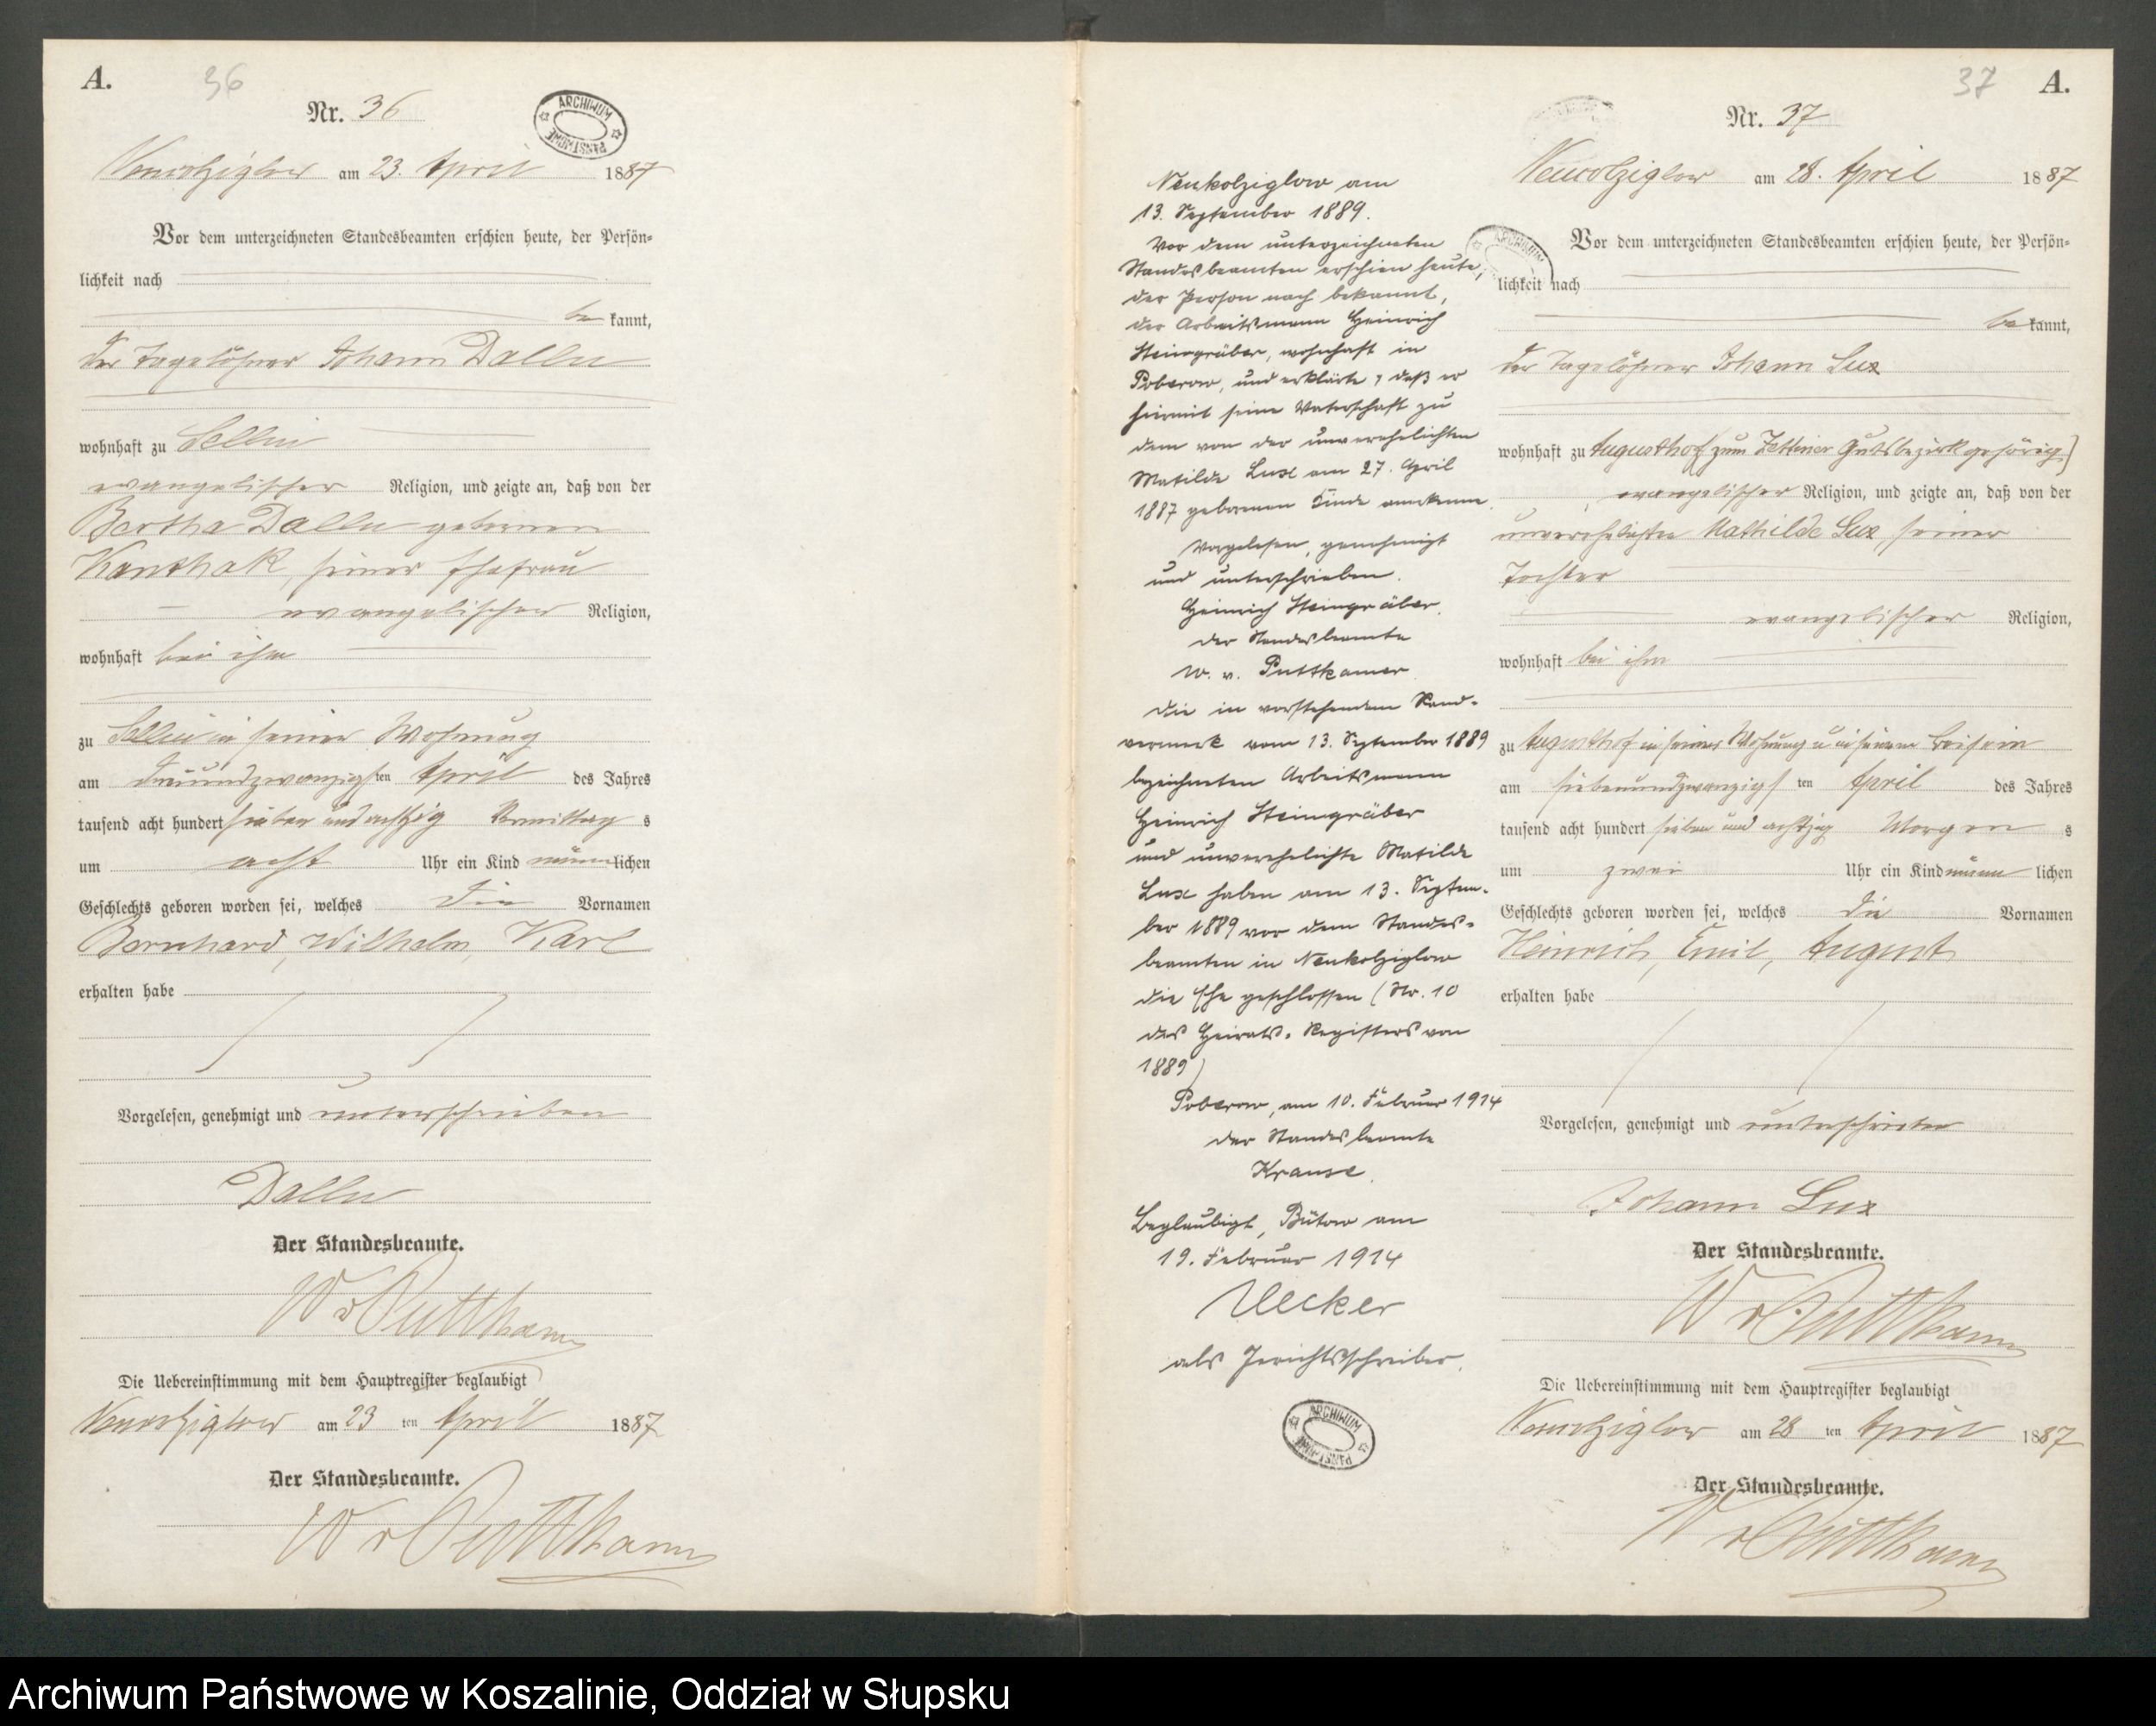 A.
36
Nr. 36
ARCHIWUM PAŃSTWOWE
Neukolziglow am 23. April 1887
Vor dem unterzeichneten Standesbeamten erschien heute, der Persön=
lichkeit nach
be kannt,
der Tagelöhner Johann
wohnhaft zu Sellin
evangelischer Religion, und zeigte an, daß von der
Bertha geborenen
Kanthak, seiner Ehefrau
evangelischer Religion,
wohnhaft bei ihm
zu Sellin in seiner Wohnung
am dreiundzwanzigsten April des Jahres
tausend acht hundert sieben und achtzig Vormittags
um acht Uhr ein Kind männlichen
Geschlechts geboren worden sei, welches die Vornamen
Bernhard, Wilhelm, Karl
erhalten habe
Vorgelesen, genehmigt und unterschrieben
Der Standesbeamte.
W v Puttkamer
Die Uebereinstimmung mit dem Hauptregister beglaubigt
Neukolziglow am 23 ten April 1887
Der Standesbeamte.
W v Puttkamer
Neukolziglow am
13. September 1889.
Vor dem unterzeichneten
Standesbeamten erschien heute,
der Person nach bekannt,
der Arbeitsmann Heinrich
Steingräber, wohnhaft in
Poberow, und erklärte, daß er
hiermit seine Vaterschaft zu
dem von der unverehelichten
Matilde Lux am 27. April
1887 geborenen Kinde anerkenne.
Vorgelesen, genehmigt
und unterschrieben.
Heinrich Steingräber.
Der Standesbeamte
W. v. Puttkamer
Die in vorstehendem Rand-
vermerk vom 13. September 1889
bezeichneten Arbeitsmann
Heinrich Steingräber
und unverehelichte Matilde
Lux haben am 13. Septem-
ber 1889 vor dem Standes-
beamten in Neukolziglow
die Ehe geschlossen (Nr. 10
des Heirats-Registers von
1889)
Poberow, am 10. Februar 1914
Der Standesbeamte
Krause.
Beglaubigt, Bütow am
19. Februar 1914
Uecker
als Gerichtsschreiber.
ARCHIWUM PAŃSTWOWE
37
A.
Nr. 37
Neukolziglow am 28. April 1887
ARCHIWUM
Vor dem unterzeichneten Standesbeamten erschien heute, der Persön=
lichkeit nach
be kannt,
der Tagelöhner Johann Lux
wohnhaft zu Augusthof zum Zettiner Gutsbezirk gehörig)
evangelischer Religion, und zeigte an, daß von der
unverehelichten Mathilde Lux, seiner
Tochter
evangelischer Religion,
wohnhaft bei ihm
zu Augusthof in seiner Wohnung u in seinem Beisein
am siebenundzwanzigsten April des Jahres
tausend acht hundert sieben und achtzig Morgens
um zwei Uhr ein Kind männlichen
Geschlechts geboren worden sei, welches die Vornamen
Heinrich, Emil, August
erhalten habe
Vorgelesen, genehmigt und unterschrieben
Johann Lux
Der Standesbeamte.
W v Puttkamer
Die Uebereinstimmung mit dem Hauptregister beglaubigt
Neukolziglow am 28 ten April 1887
Der Standesbeamte.
W v Puttkamer
Archiwum Państwowe w Koszalinie, Oddział w Słupsku